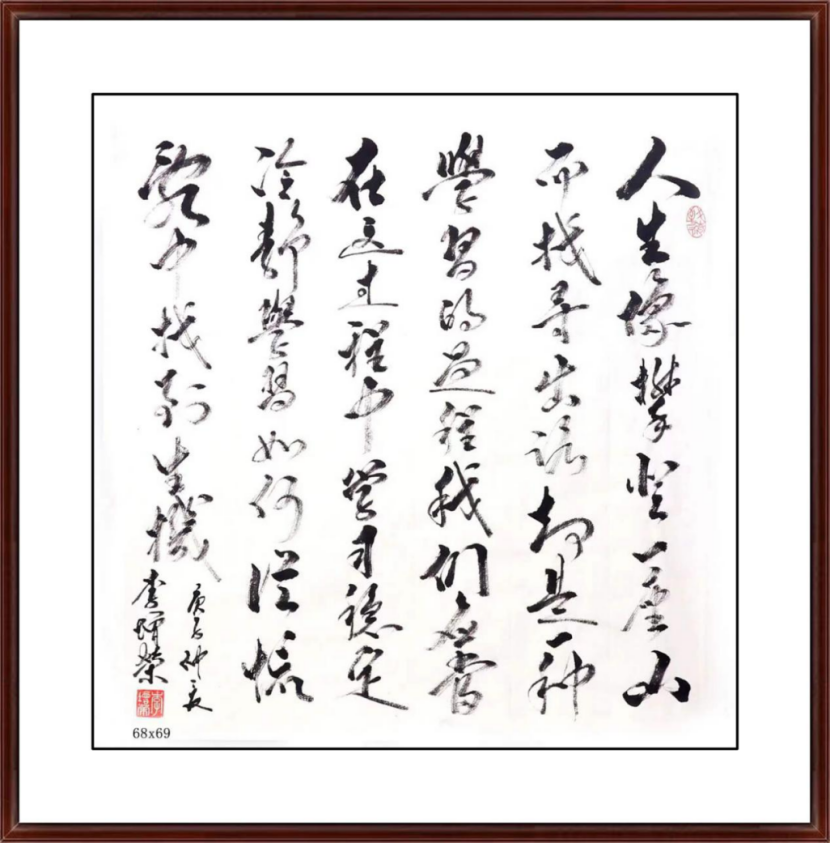 人生像攀登一座山
而找寻出路却是一种
學習的过程我们应當
在这过程中学习稳定
冷静學習如何從慌
亂中找到生機
庚子仲夏
李榮
68x69